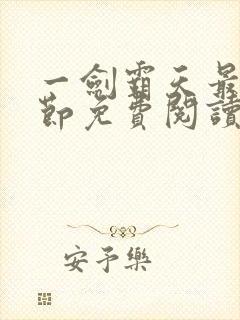 一劍霸天最
節免費閱讀
安予樂